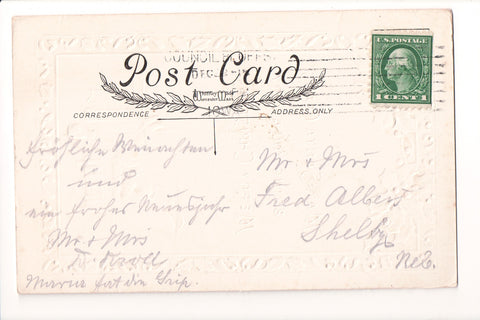 COUNCIL BLUFFS
DEC
Post Card
CORRESPONDENCE
ADDRESS ONLY
U.S. POSTAGE
1 CENT 1
Fröhliche Weinachten
und
ein frohes Neuesjahr
Mr & Mrs
Maria hat die Grip.
Mr. & Mrs
Fred Albert
Shelby
Neb.